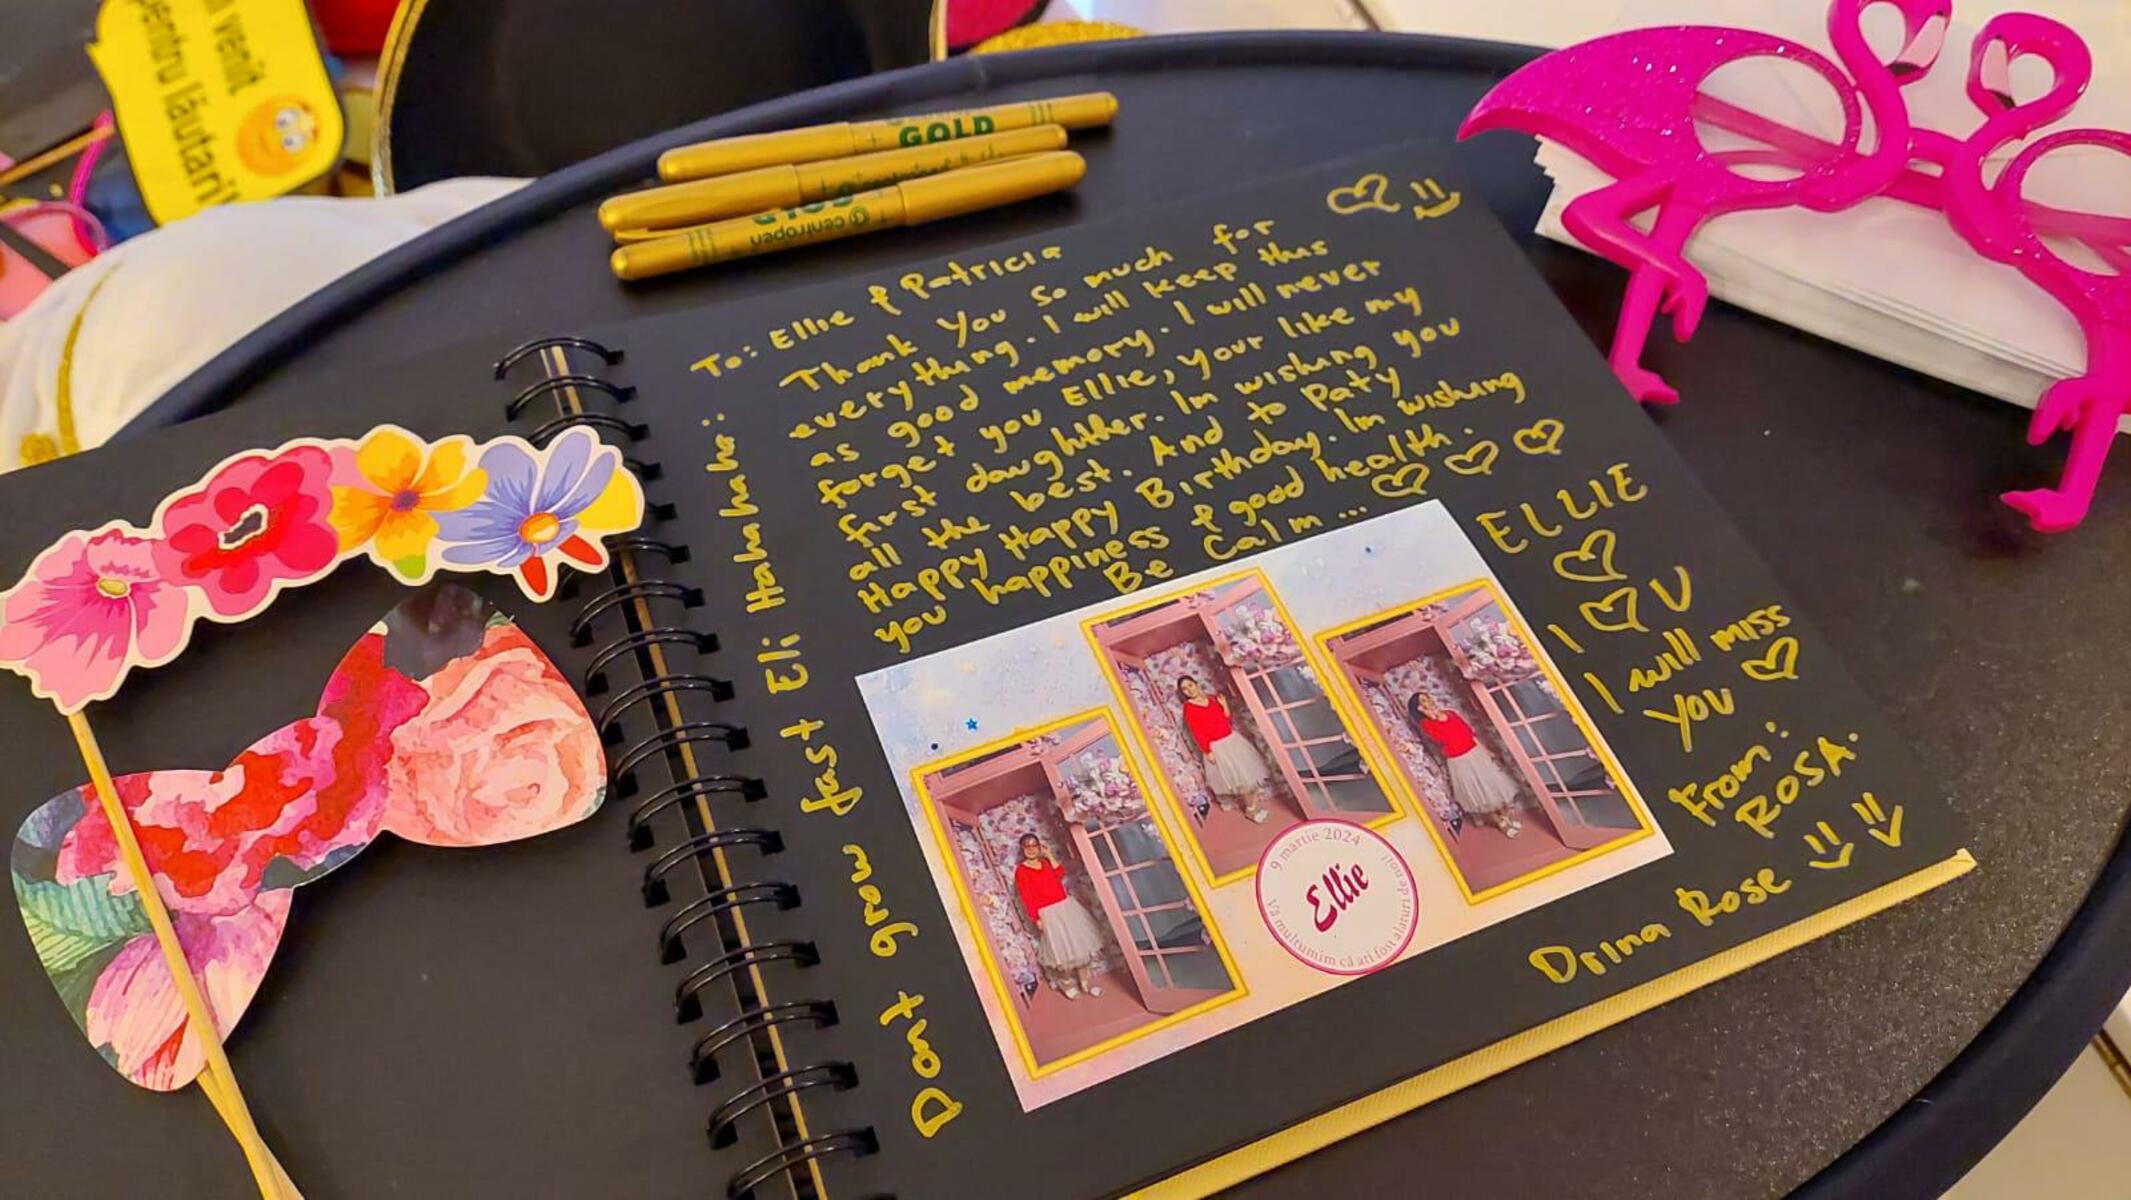 venit
pentru lăutari
GOLD
centropen
To: Ellie & Patricia
Thank You so much for
everything. I will keep this
as good memory. I will never
forget you Ellie, your like my
first daughther. Im wishing you
all the best. And to Paty
Happy Happy Birthday. Im wishing
you happiness & good health.
Be Calm ...
Dont grow fast Eli Hahahaha:
ELLIE
I U
I will miss
you
From:
ROSA.
Drina Rose
9 martie 2024
Ellie
Vă mulțumim că ați fost alături de noi!